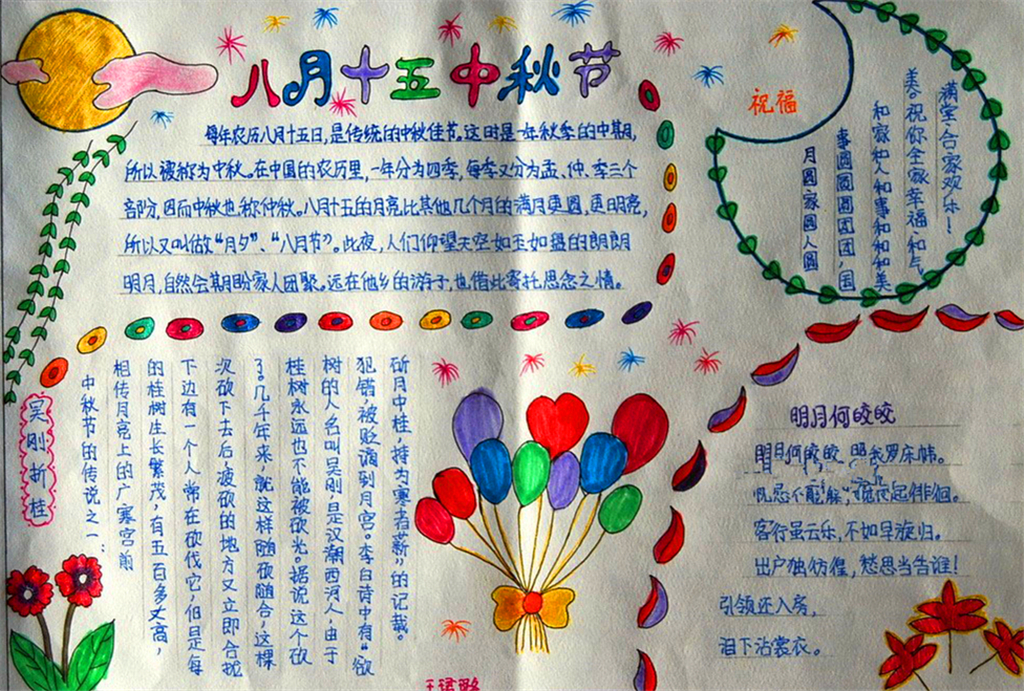 八月十五中秋节
每年农历八月十五日，是传统的中秋佳节。这时是一年秋季的中期，
所以被称为中秋。在中国的农历里，一年分为四季，每季又分为孟、仲、季三个
部分，因而中秋也称仲秋。八月十五的月亮比其他几个月的满月更圆，更明亮，
所以又叫做“月夕”、“八月节”。此夜，人们仰望天空如玉如盘的朗朗
明月，自然会期盼家人团聚。远在他乡的游子，也借此寄托思念之情。
祝福
满堂，合家欢乐！
美。祝你全家幸福，和气
和家和人和事和和和美
事圆圆圆团团，国
月圆家圆人圆
吴刚折桂
中秋节的传说之一：
相传月亮上的广寒宫前
的桂树生长繁茂，有五百多丈高，
下边有一个人常在砍伐它，但是每
次砍下去后，被砍的地方又立即合拢
了。几千年来，就这样随砍随合，这棵
桂树永远也不能被砍光。据说这个砍
树的人名叫吴刚，是汉潮西河人，由于
犯错，被贬谪到月宫。李白诗中有“欲
斫月中桂，持为寒者薪”的记载。
明月何皎皎
明月何皎皎，照我罗床帏。
忧愁不能寐，起徘徊。
客行虽云乐，不如早旋归。
出户独彷徨，愁思当告谁！
引领还入房，
泪下沾裳衣。